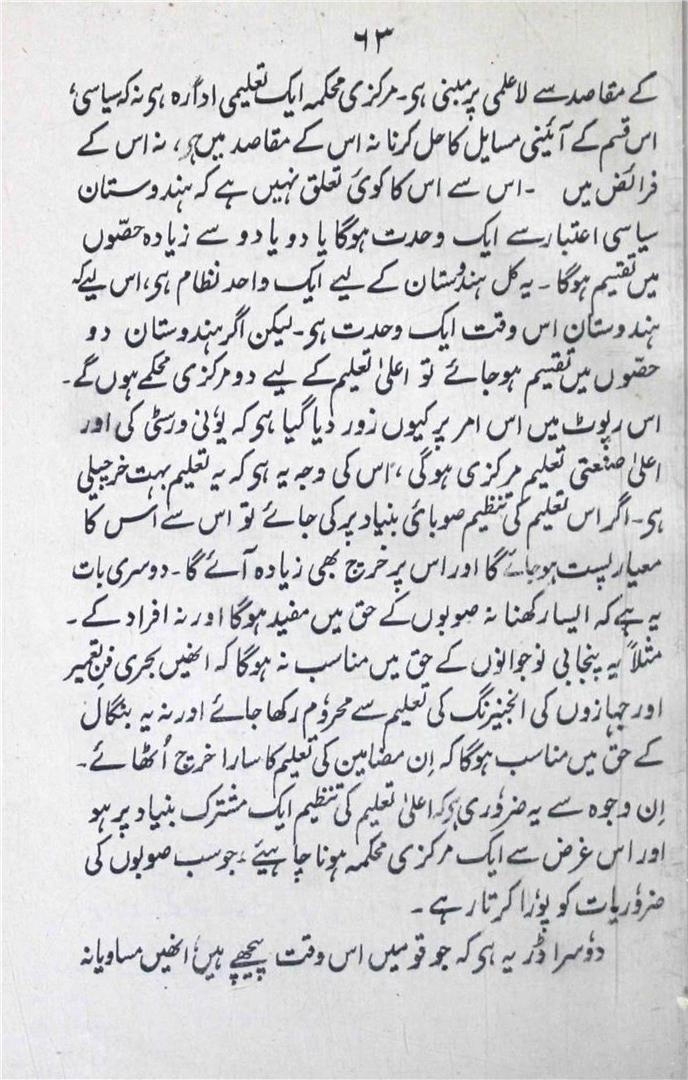 ۶۳
کے مقاصد سے لاعلمی پر مبنی ہی۔ مرکزی محکمہ ایک تعلیمی ادارہ ہی نہ کہ سیاسی،
اس قسم کے آئینی مسایل کا حل کرنا نہ اس کے مقاصد میں ہی، نہ اس کے
فرائض میں ۔ اس سے اس کا کوئ تعلق نہیں ہے کہ ہندوستان
سیاسی اعتبار سے ایک وحدت ہوگا یا دو یا دو سے زیادہ حصّوں
میں تقسیم ہوگا ۔ یہ کل ہندستان کے لیے ایک واحد نظام ہی، اس لیے کہ
ہندوستان اس وقت ایک وحدت ہی۔ لیکن اگر ہندوستان دو
حصّوں میں تقسیم ہوجائے تو اعلیٰ تعلیم کے لیے دو مرکزی محکمے ہوں گے۔
اس رپوٹ میں اس امر پر کیوں زور دیا گیا ہی کہ یونی ورسٹی کی اور
اعلیٰ صنعتی تعلیم مرکزی ہوگی ، اس کی وجہ یہ ہی کہ یہ تعلیم بہت خرچیلی
ہی۔ اگر اس تعلیم کی تنظیم صوبائ بنیاد پر کی جائے تو اس سے اس کا
معیار پست ہوجائے گا اور اس پر خرچ بھی زیادہ آئے گا۔ دوسری بات
یہ ہے کہ ایسا رکھنا نہ صوبوں کے حق میں مفید ہوگا اور نہ افراد کے ۔
مثلاً یہ پنجابی نوجوانوں کے حق میں مناسب نہ ہوگا کہ انھیں بحری فن تعمیر
اور جہازوں کی انجنیرنگ کی تعلیم سے محروم رکھا جائے اور نہ یہ بنگال
کے حق میں مناسب ہوگا کہ اِن مضامین کی تعلیم کا سارا خرچ اُٹھائے ۔
اِن وجوہ سے یہ ضروری ہی کہ اعلیٰ تعلیم کی تنظیم ایک مشترک بنیاد پر ہو
اور اس غرض سے ایک مرکزی محکمہ ہونا چاہیئے، جو سب صوبوں کی
ضروریات کو پورا کرتا رہے ۔
دوسرا ڈر یہ ہی کہ جو قومیں اس وقت پیچھے ہیں، انھیں مساویانہ